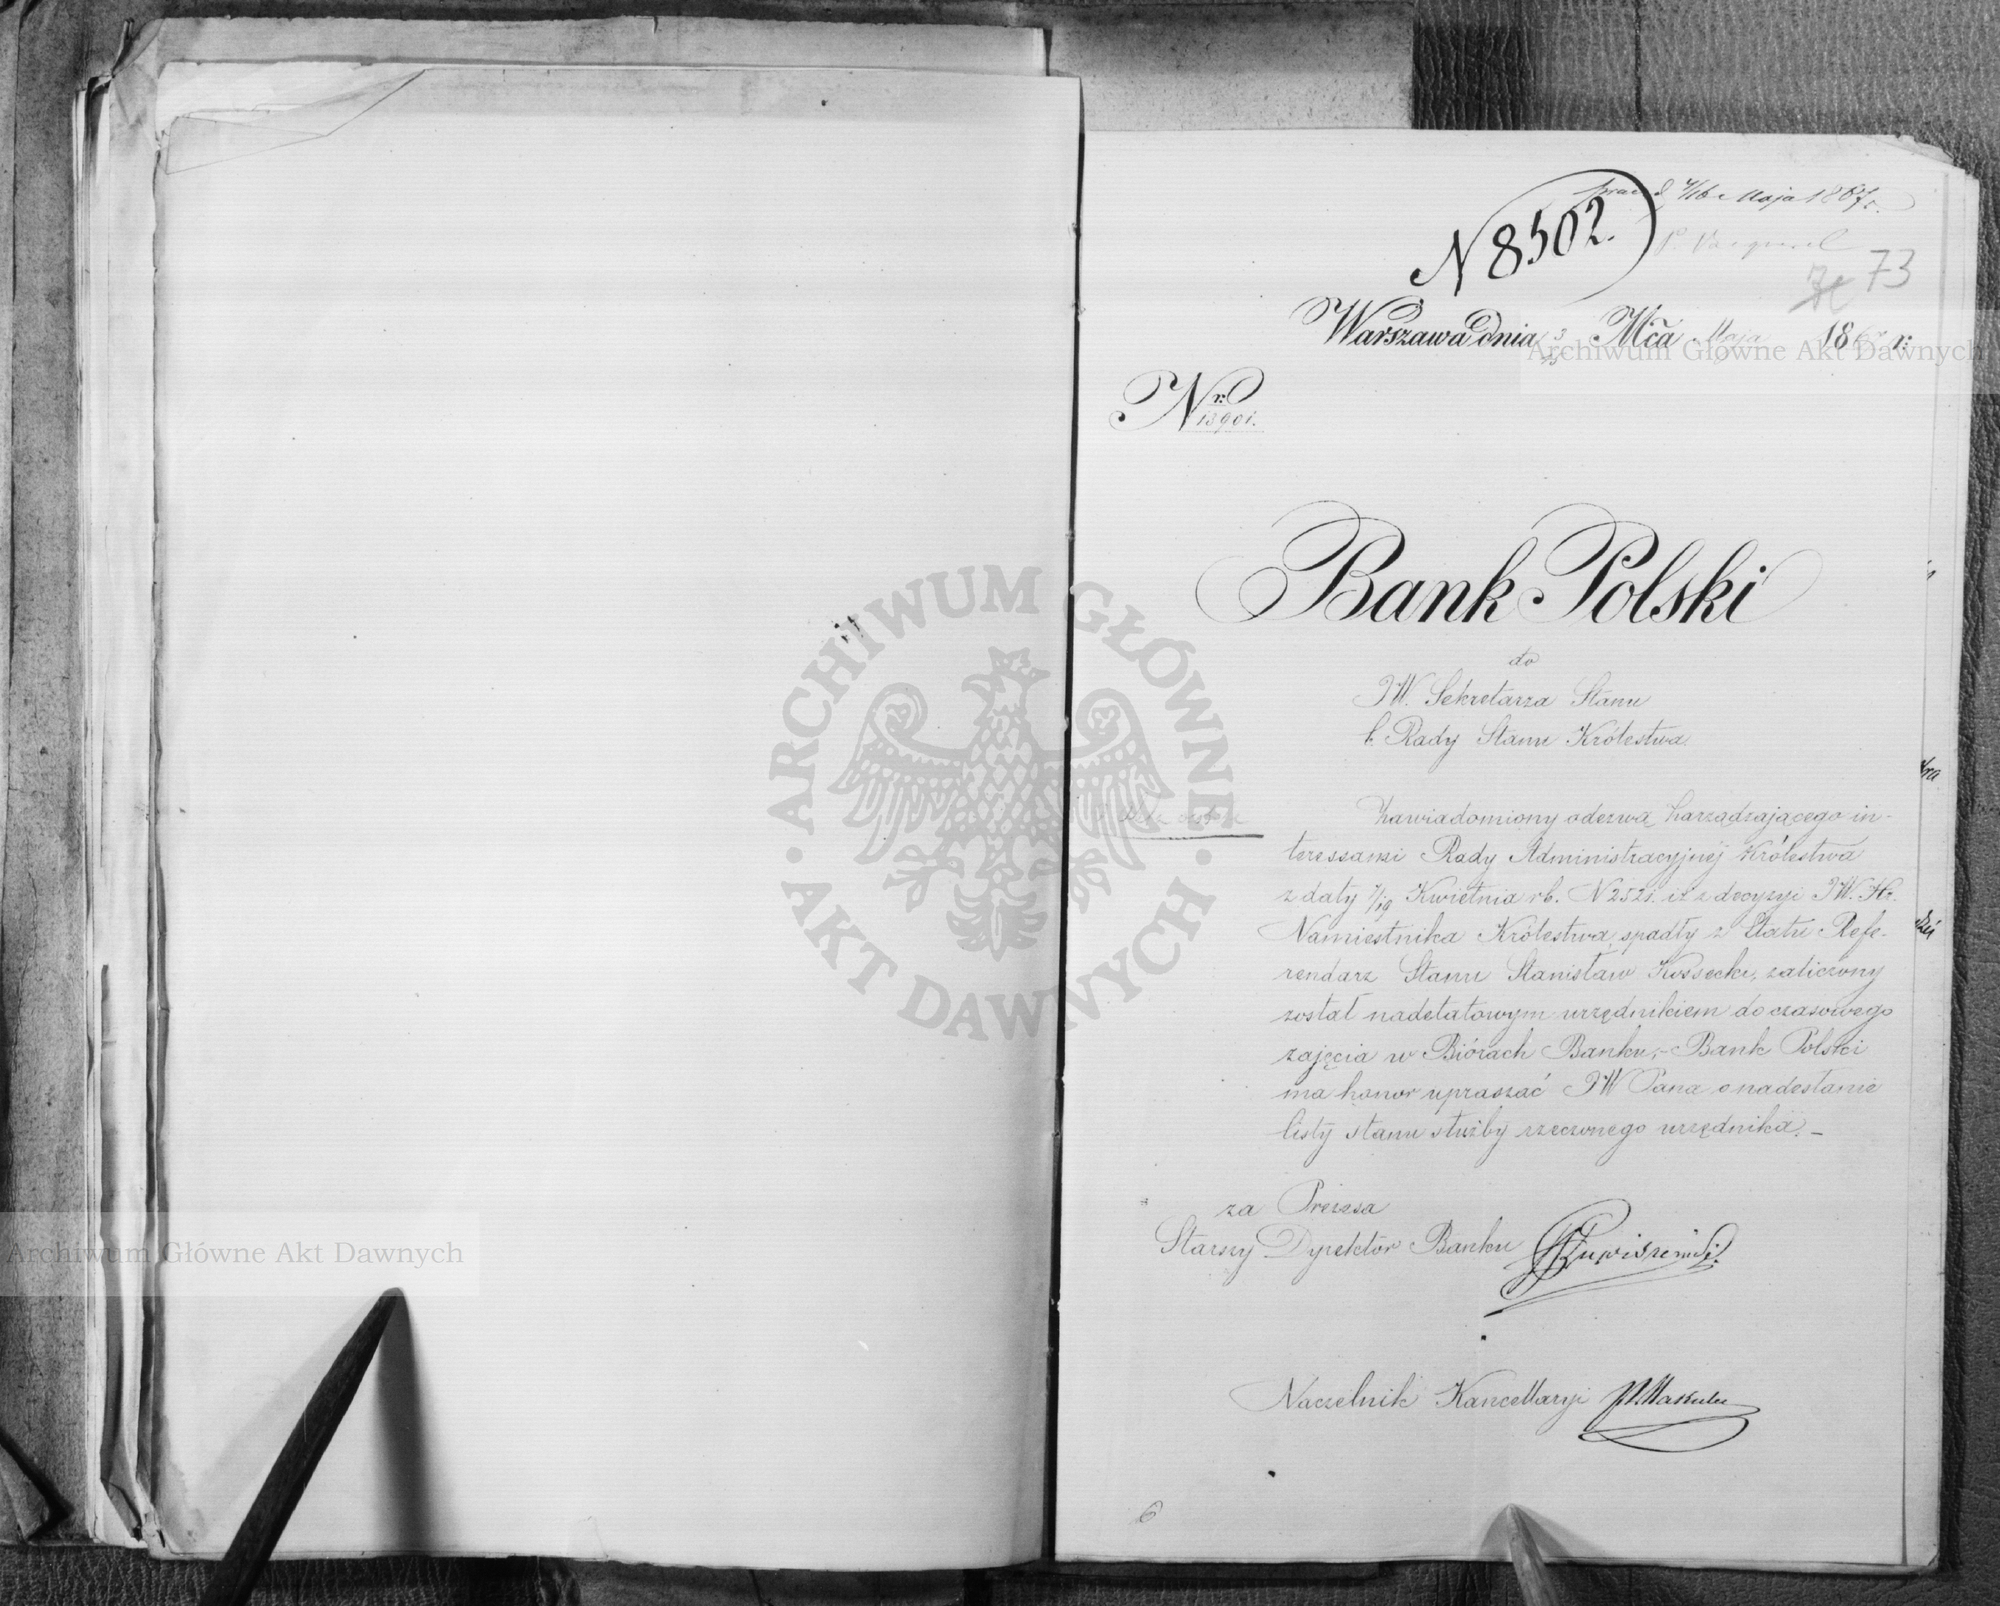 4/16 Maja 1867 r.
N 8502.
73
Warszawa dnia 3/15 Mca Maja 186 r:
Nr: 13901.
Bank Polski
do
JW. Sekretarza Stanu
b. Rady Stanu Królestwa.
Zawiadomiony odezwą Zarządzającego in-
teressami Rady Administracyjnéj Królestwa
z daty 7/19 Kwietnia rb. N 2521. iż z decyzyi JW. Hr.
Namiestnika Królestwa, spadły z Etatu Refe-
rendarz Stanu Stanisław Kossecki, zaliczony
został nadetatowym urzędnikiem do czasowego
zajęcia w Biórach Banku,- Bank Polski
ma honor upraszać JW Pana o nadesłanie
listy stanu służby rzeczonego urzędnika.-
za Prezesa
Starszy Dyrektor Banku
Naczelnik Kancellaryi
6
ARCHIWUM GŁÓWNE AKT DAWNYCH
Archiwum Główne Akt Dawnych
Archiwum Główne Akt Dawnych